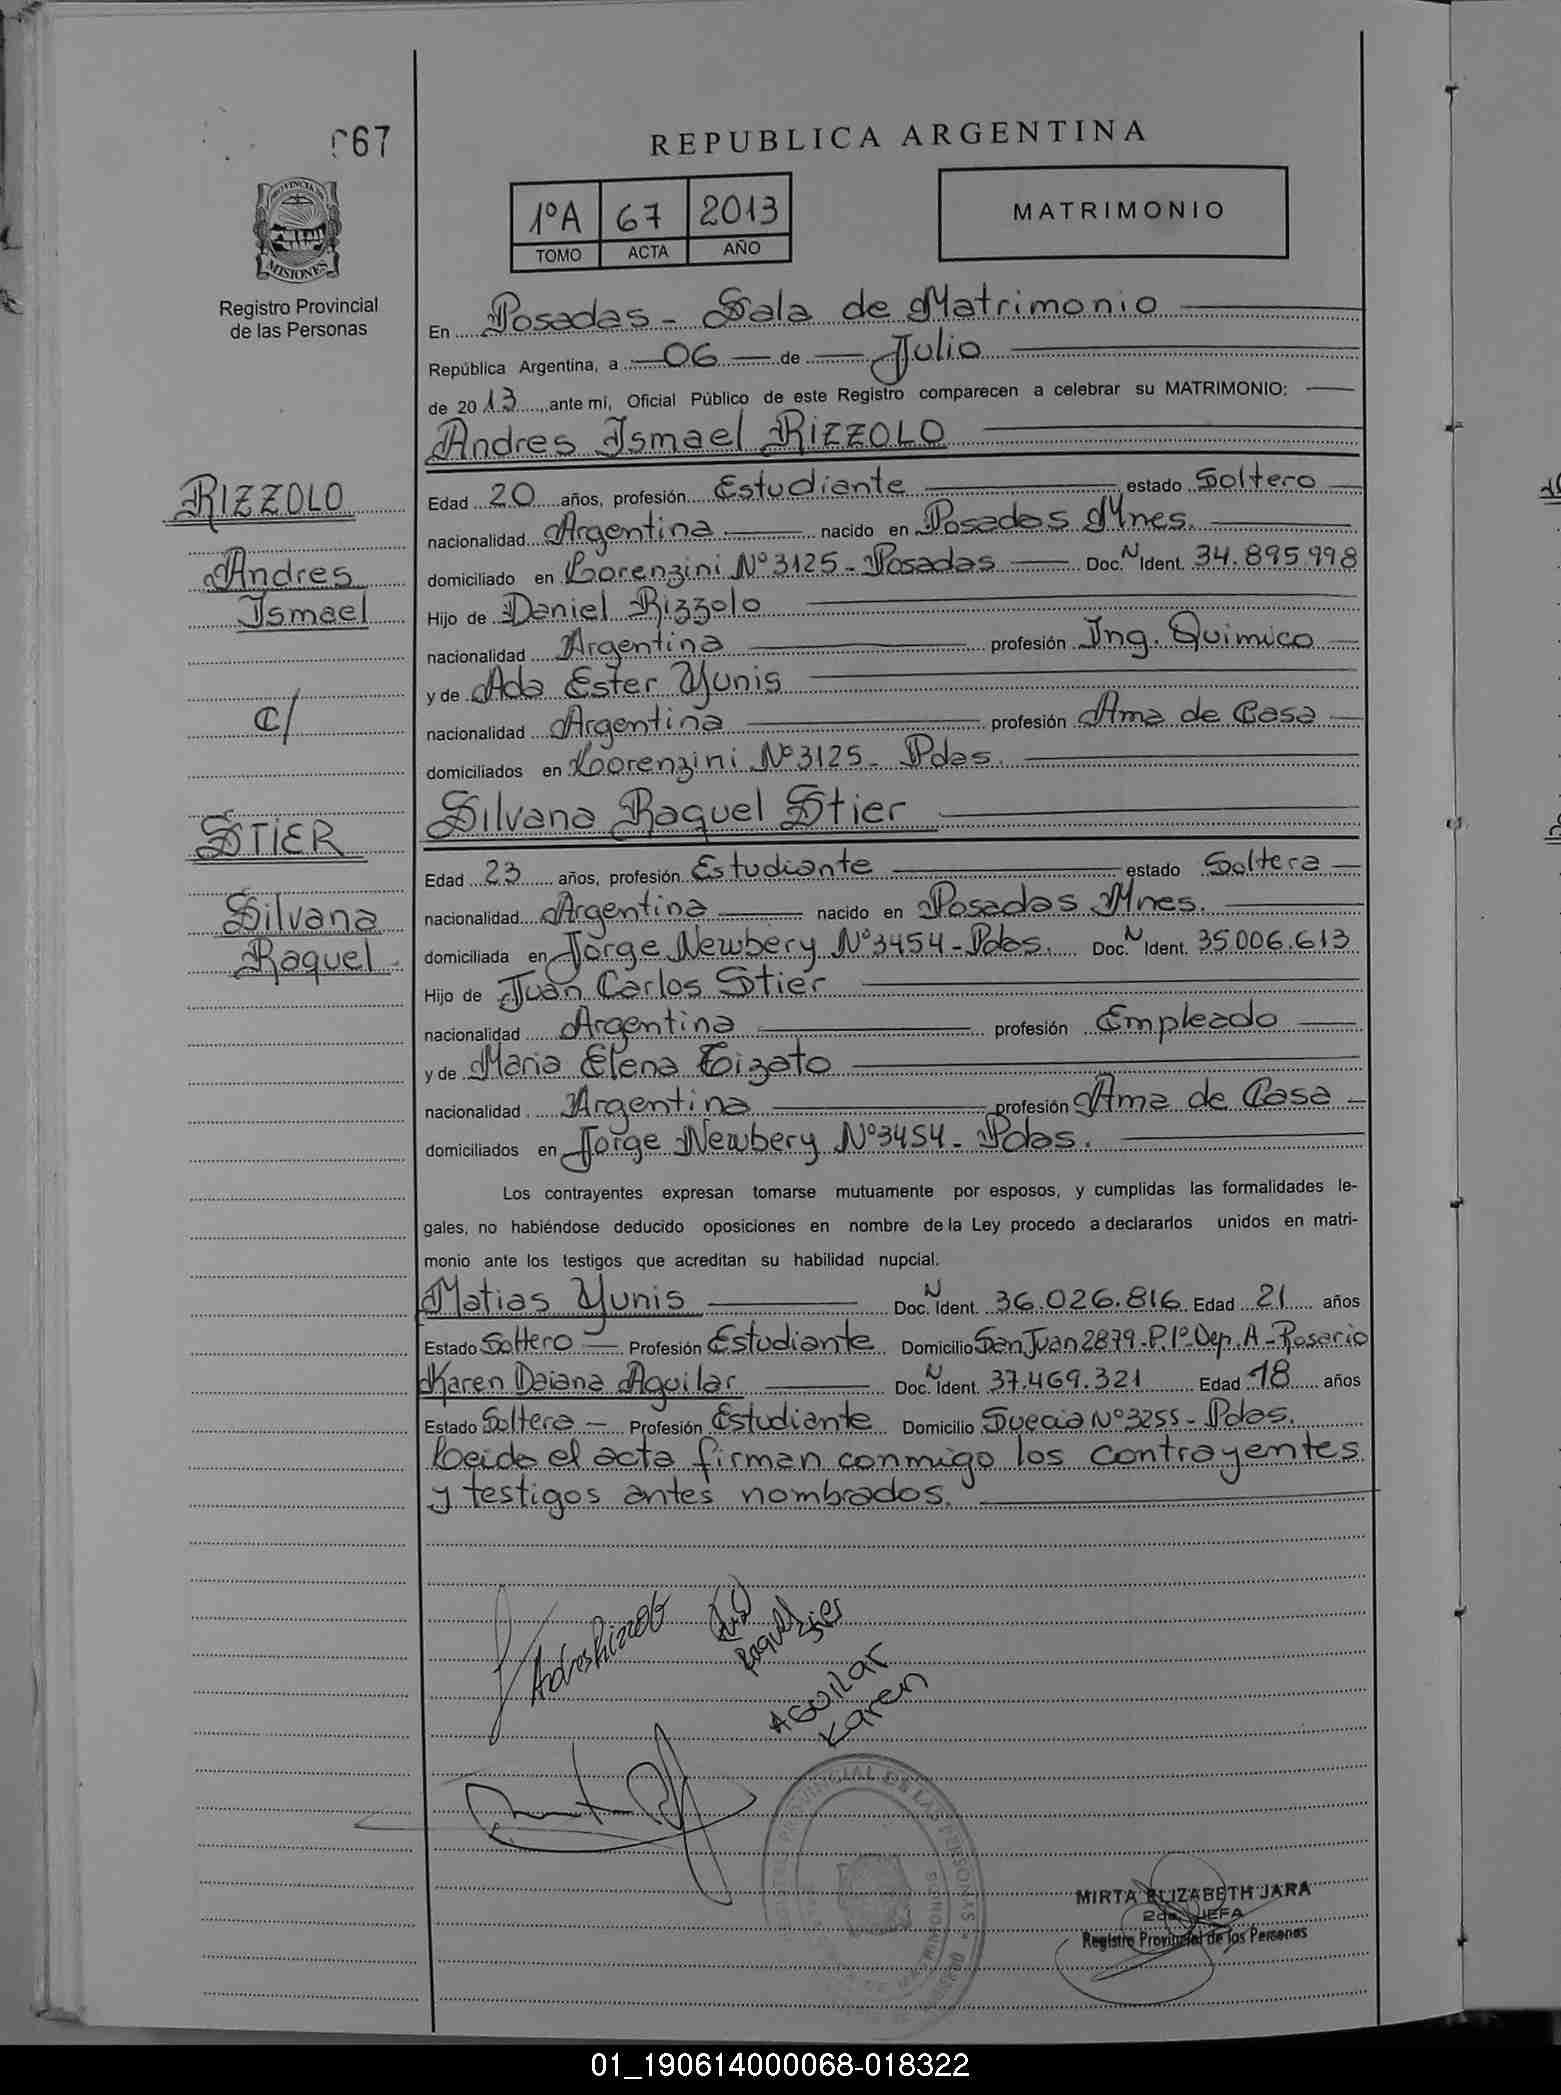 067
REPUBLICA ARGENTINA
PROVINCIA DE
MISIONES
Registro Provincial
de las Personas
1ºA 67 2013
TOMO ACTA AÑO
MATRIMONIO
En Posadas - Sala de Matrimonio
República Argentina, a 06 de Julio
de 2013, ante mi, Oficial Público de este Registro comparecen a celebrar su MATRIMONIO:
Andres Ismael RIZZOLO
RIZZOLO
Andres
Ismael
C/
STIER
Silvana
Raquel
Edad 20 años, profesión Estudiante estado Soltero
nacionalidad Argentina nacido en Posadas Mnes.
domiciliado en Lorenzini Nº 3125 - Posadas Doc. N Ident. 34.895.998
Hijo de Daniel Rizzolo
nacionalidad Argentina profesión Ing. Quimico
y de Ada Ester Yunis
nacionalidad Argentina profesión Ama de Casa
domiciliados en Lorenzini Nº 3125 - Pdas.
Silvana Raquel Stier
Edad 23 años, profesión Estudiante estado Soltera
nacionalidad Argentina nacido en Posadas Mnes.
domiciliada en Jorge Newbery Nº 3454 - Pdas. Doc. N Ident. 35.006.613
Hijo de Juan Carlos Stier
nacionalidad Argentina profesión Empleado
y de Maria Elena Tizato
nacionalidad Argentina profesión Ama de Casa
domiciliados en Jorge Newbery Nº 3454 - Pdas.
Los contrayentes expresan tomarse mutuamente por esposos, y cumplidas las formalidades le-
gales, no habiéndose deducido oposiciones en nombre de la Ley procedo a declararlos unidos en matri-
monio ante los testigos que acreditan su habilidad nupcial.
Matias Yunis Doc. N Ident. 36.026.816 Edad 21 años
Estado Soltero Profesión Estudiante Domicilio San Juan 2879 - P. 1º - Dep. A - Rosario
Karen Daiana Aguilar Doc. N Ident. 37.469.321 Edad 18 años
Estado Soltera Profesión Estudiante Domicilio Suecia Nº 3255 - Pdas.
Leida el acta firman conmigo los contrayentes
y testigos antes nombrados.
Andres Rizzolo
Raquel Stier
AGUILAR
Karen
PROVINCIAL DE LAS PERSONAS
MIRTA ELIZABETH JARA
2da. JEFA
Registro Provincial de las Personas
01_190614000068-018322